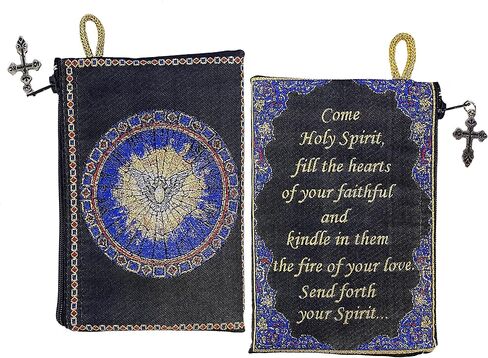 Come
Holy Spirit,
fill the hearts
of your faithful
and
kindle in them
the fire of your love.
Send forth
your Spirit...